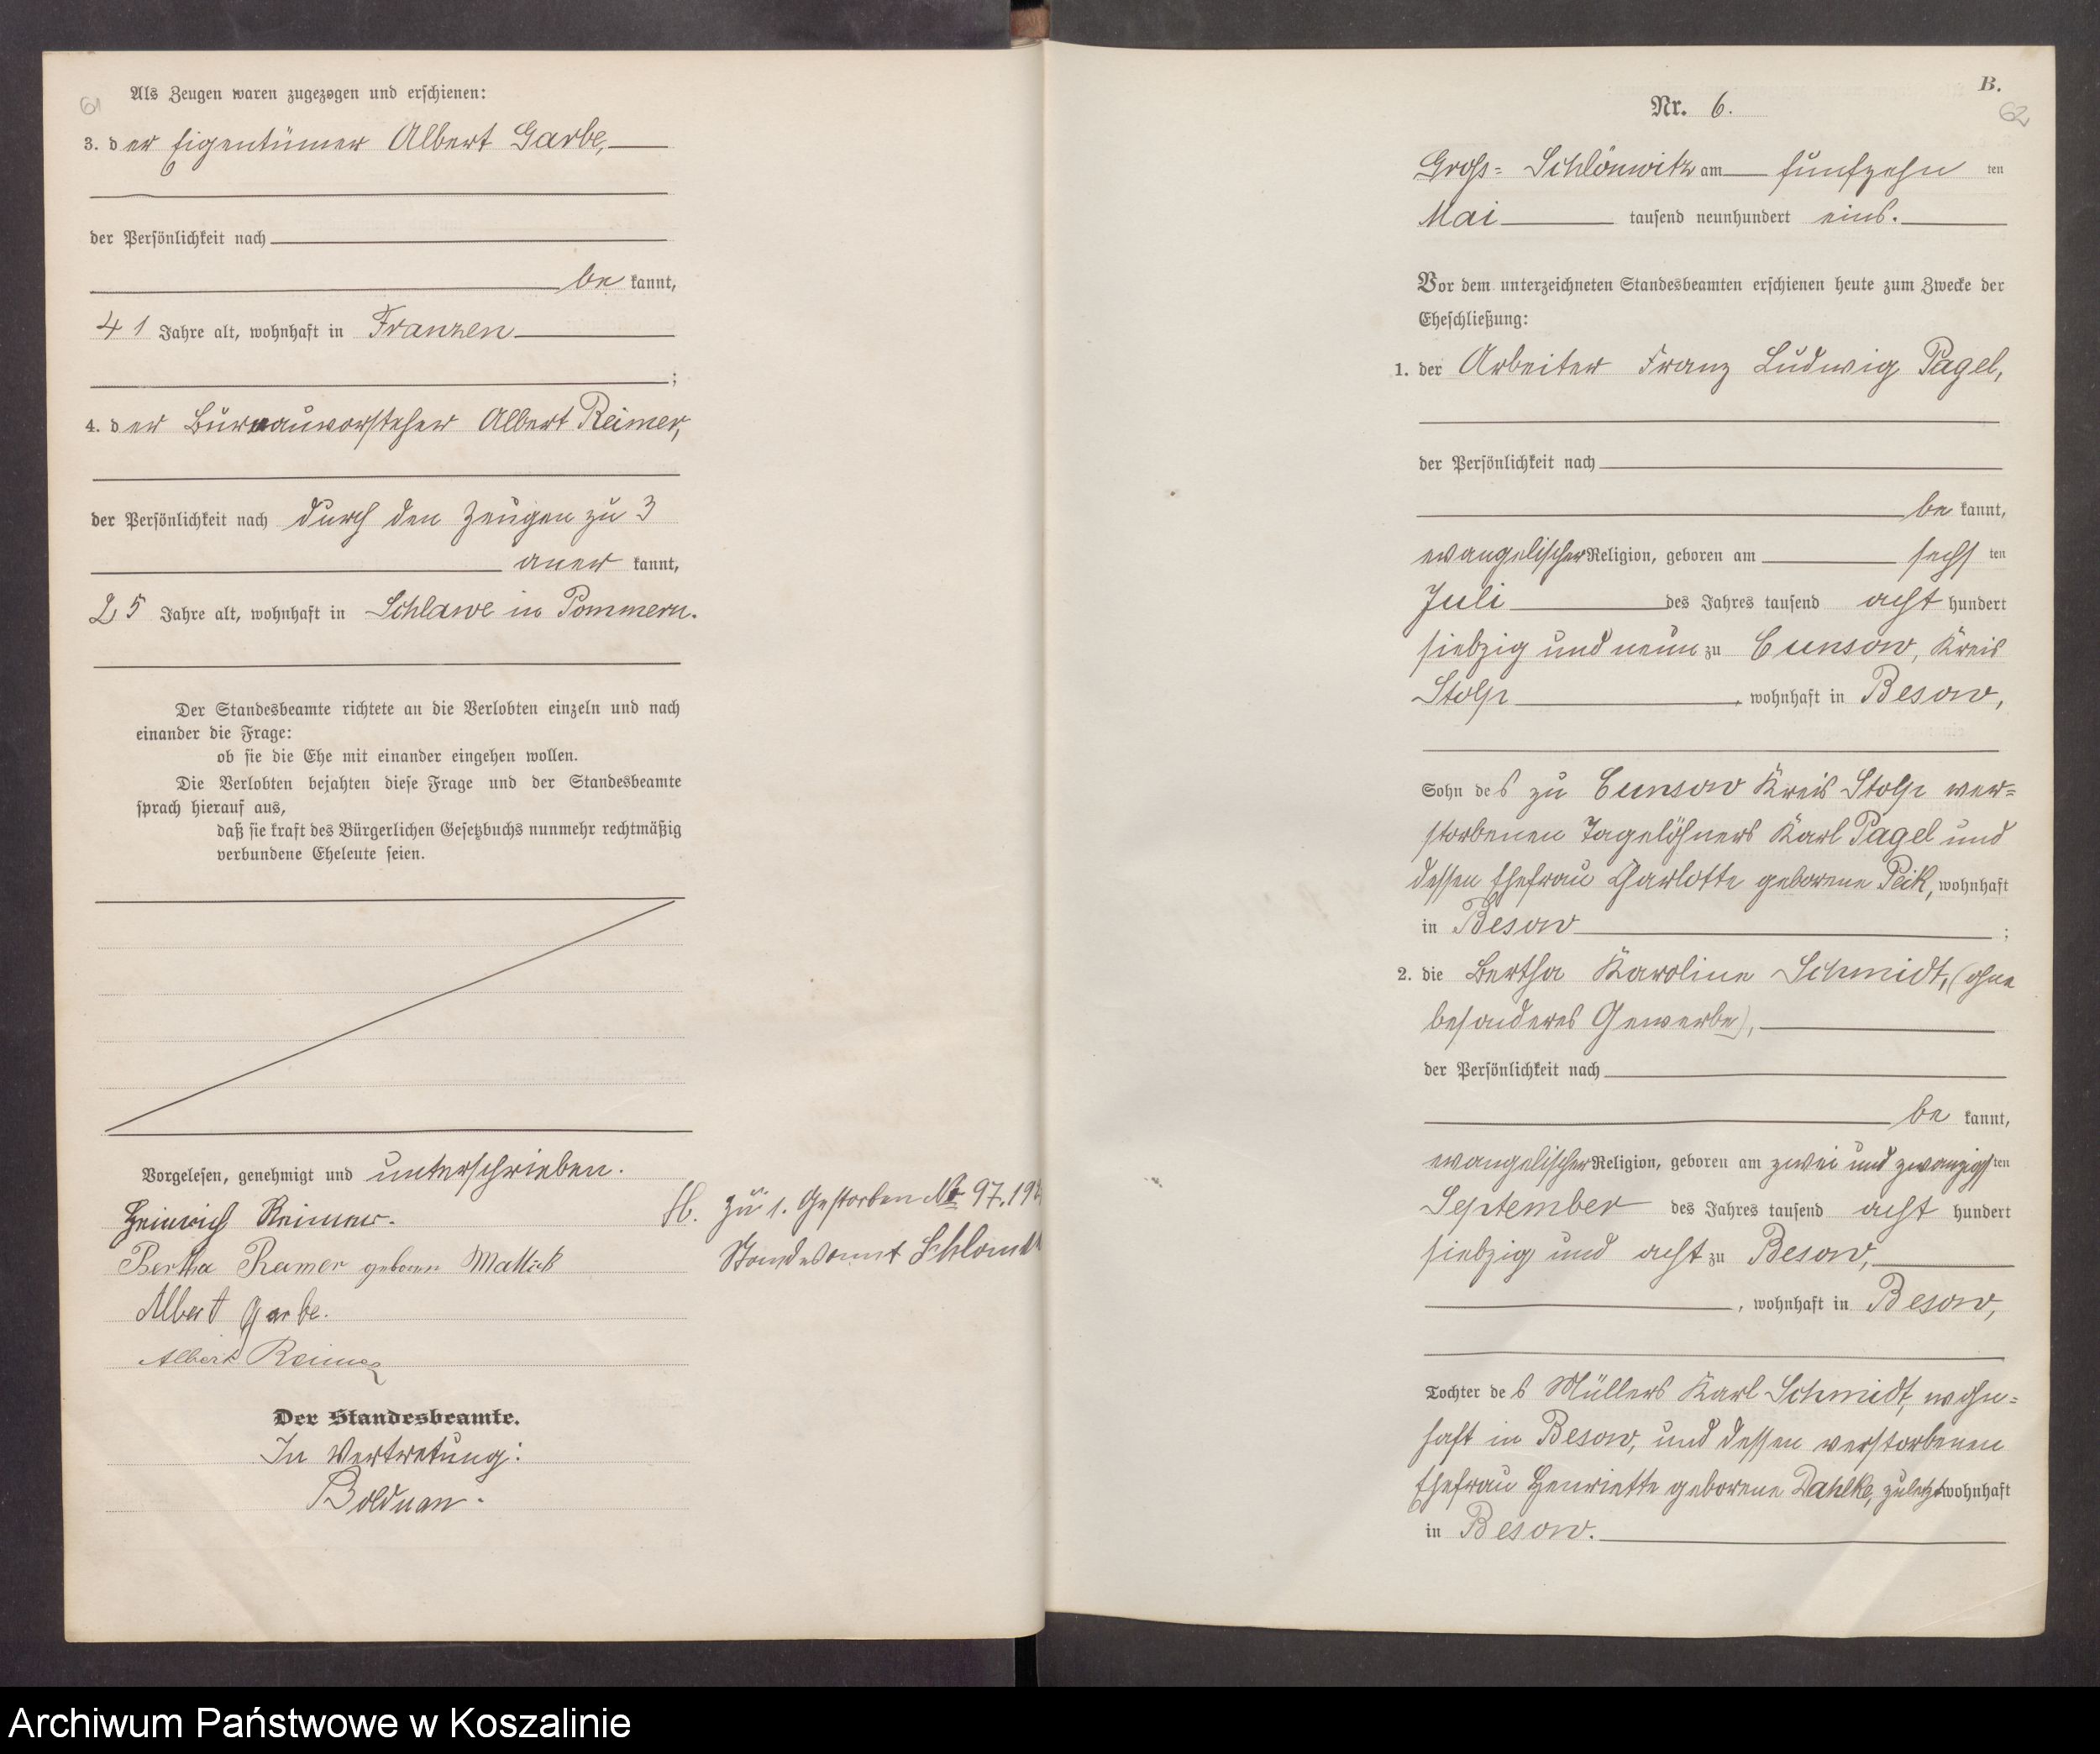 61
Als Zeugen waren zugezogen und erschienen:
3. der Eigentümer Albert Garbe,
der Persönlichkeit nach
be kannt,
41 Jahre alt, wohnhaft in Franzen
;
4. der Bureauvorsteher Albert Reimer,
der Persönlichkeit nach durch den Zeugen zu 3
aner kannt,
25 Jahre alt, wohnhaft in Schlawe in Pommern.
Der Standesbeamte richtete an die Verlobten einzeln und nach
einander die Frage:
ob sie die Ehe mit einander eingehen wollen.
Die Verlobten bejahten diese Frage und der Standesbeamte
sprach hierauf aus,
daß sie kraft des Bürgerlichen Gesetzbuchs nunmehr rechtmäßig
verbundene Eheleute seien.
Vorgelesen, genehmigt und unterschrieben.
Heinrich Reimer.
Bertha Reimer geborene Mallick
Albert Garbe.
Albert Reimer
H. Zu 1. Gestorben № 97.19
Standesamt
Der Standesbeamte.
In Vertretung:
Bolduan.
B.
62
Nr. 6.
Groß-Schlönwitz am fünfzehn ten
Mai tausend neunhundert eins.
Vor dem unterzeichneten Standesbeamten erschienen heute zum Zwecke der
Eheschließung:
1. der Arbeiter Franz Ludwig Pagel,
der Persönlichkeit nach
be kannt,
evangelischer Religion, geboren am sechs ten
Juli des Jahres tausend acht hundert
siebzig und neun zu Cunsow, Kreis
Stolp, wohnhaft in Besow,
Sohn des zu Cunsow Kreis Stolp ver=
storbenen Tagelöhners Karl Pagel und
dessen Ehefrau Charlotte geborene Peik, wohnhaft
in Besow ;
2. die Bertha Karoline Schmidt, (ohne
besonderes Gewerbe),
der Persönlichkeit nach
be kannt,
evangelischer Religion, geboren am zwei und zwanzigsten
September des Jahres tausend acht hundert
siebzig und acht zu Besow,
, wohnhaft in Besow,
Tochter des Müllers Karl Schmidt, wohn=
haft in Besow, und dessen verstorbenen
Ehefrau Henriette geborene Dahlke, zuletzt wohnhaft
in Besow.
Archiwum Państwowe w Koszalinie